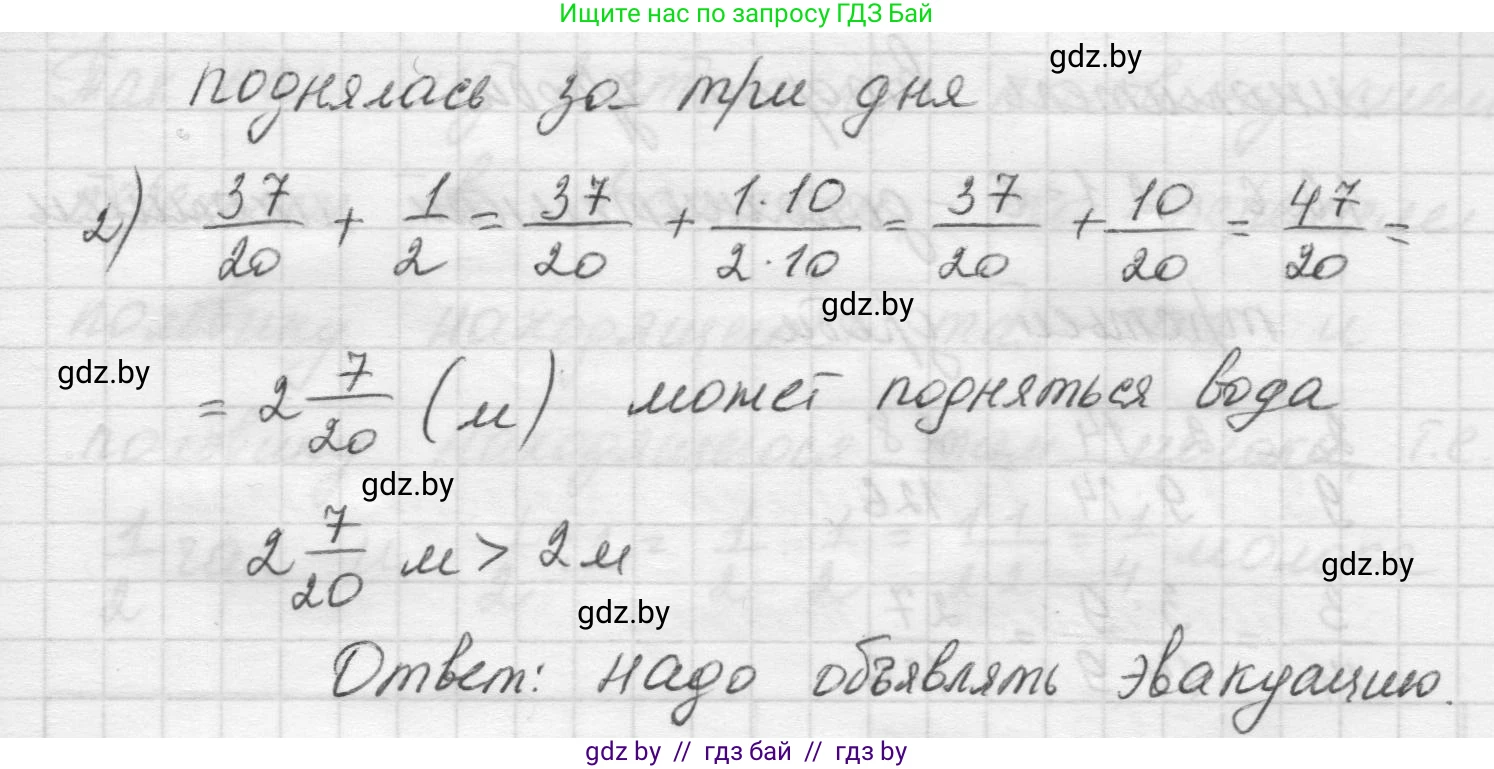 Ищите нас по запросу ГДЗ Бай
gdz.by
поднялась за три дня
2) 37/20 + 1/2 = 37/20 + 1·10/2·10 = 37/20 + 10/20 = 47/20 =
gdz.by
gdz.by
= 2 7/20 (м) может подняться вода
gdz.by
2 7/20 м > 2 м
gdz.by
gdz.by
Ответ: надо объявлять эвакуацию.
gdz by // гдз бай // гдз by